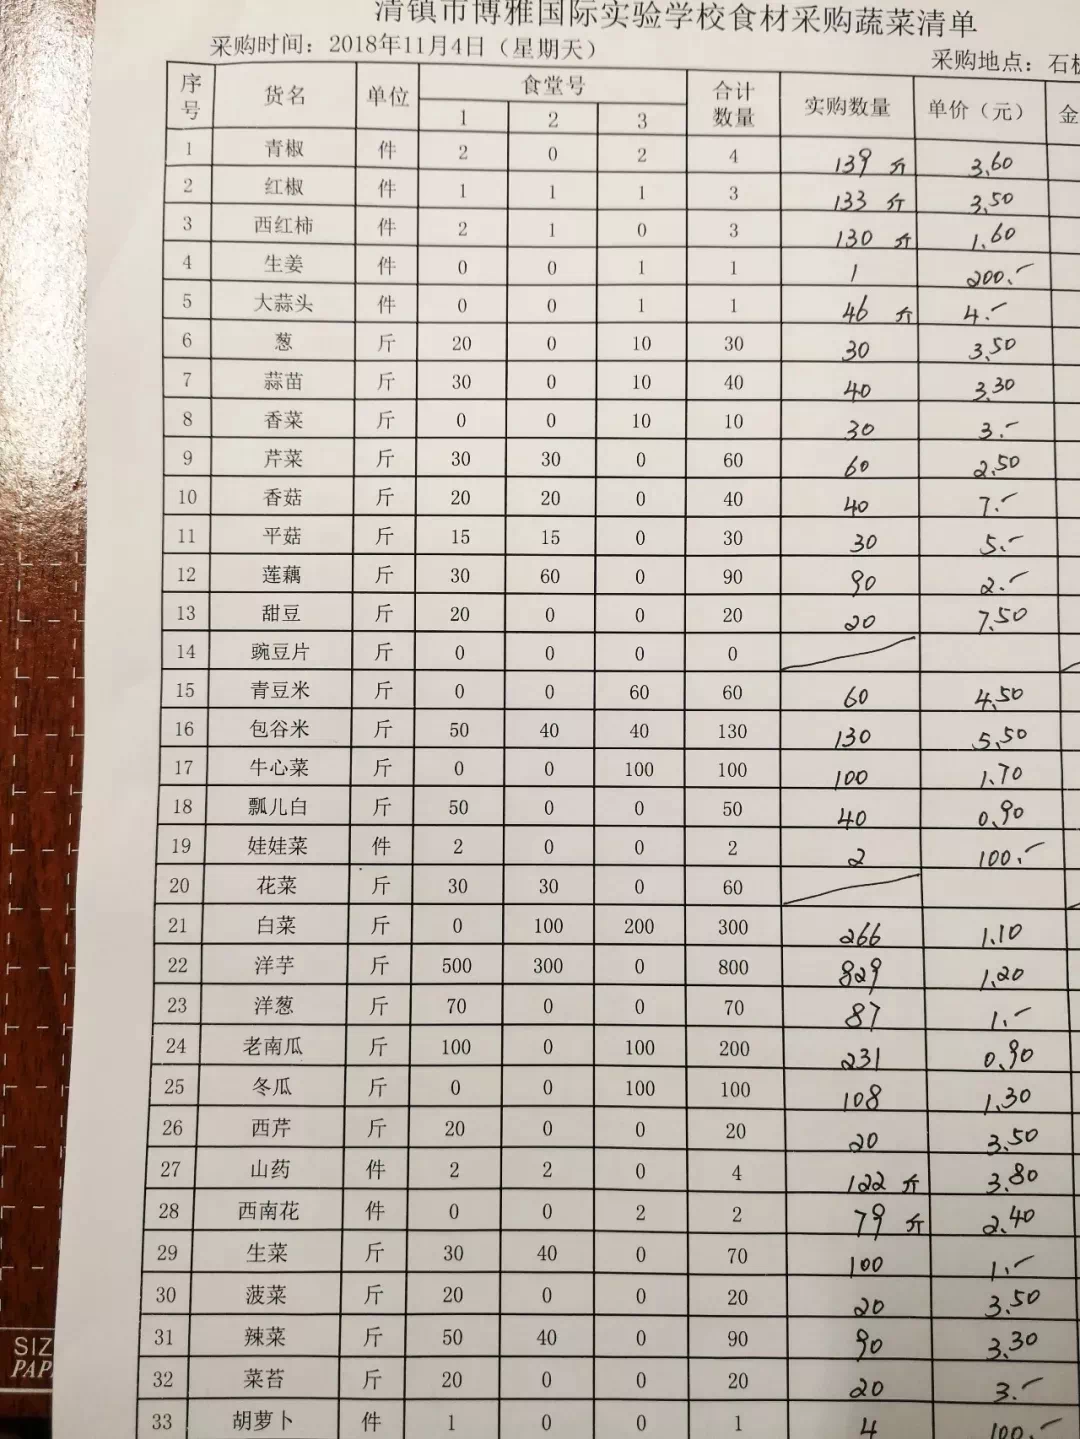 清镇市博雅国际实验学校食材采购蔬菜清单
采购时间：2018年11月4日（星期天） 采购地点：石板
序号 货名 单位 食堂号 合计数量 实购数量 单价（元） 金
1 2 3
1 青椒 件 2 0 2 4 139 斤 3.60
2 红椒 件 1 1 1 3 133 斤 3.50
3 西红柿 件 2 1 0 3 130 斤 1.60
4 生姜 件 0 0 1 1 1 200.-
5 大蒜头 件 0 0 1 1 46 斤 4.-
6 葱 斤 20 0 10 30 30 3.50
7 蒜苗 斤 30 0 10 40 40 3.30
8 香菜 斤 0 0 10 10 30 3.-
9 芹菜 斤 30 30 0 60 60 2.50
10 香菇 斤 20 20 0 40 40 7.-
11 平菇 斤 15 15 0 30 30 5.-
12 莲藕 斤 30 60 0 90 90 2.-
13 甜豆 斤 20 0 0 20 20 7.50
14 豌豆片 斤 0 0 0 0
15 青豆米 斤 0 0 60 60 60 4.50
16 包谷米 斤 50 40 40 130 130 5.50
17 牛心菜 斤 0 0 100 100 100 1.70
18 瓢儿白 斤 50 0 0 50 40 0.90
19 娃娃菜 件 2 0 0 2 2 100.-
20 花菜 斤 30 30 0 60
21 白菜 斤 0 100 200 300 266 1.10
22 洋芋 斤 500 300 0 800 829 1.20
23 洋葱 斤 70 0 0 70 87 1.-
24 老南瓜 斤 100 0 100 200 231 0.90
25 冬瓜 斤 0 0 100 100 108 1.30
26 西芹 斤 20 0 0 20 20 3.50
27 山药 件 2 2 0 4 122 斤 3.80
28 西南花 件 0 0 2 2 79 斤 2.40
29 生菜 斤 30 40 0 70 100 1.-
30 菠菜 斤 20 0 0 20 20 3.50
31 辣菜 斤 50 40 0 90 90 3.30
32 菜苔 斤 20 0 0 20 20 3.-
33 胡萝卜 件 1 0 0 1 4 100.-
SIZ
PAP